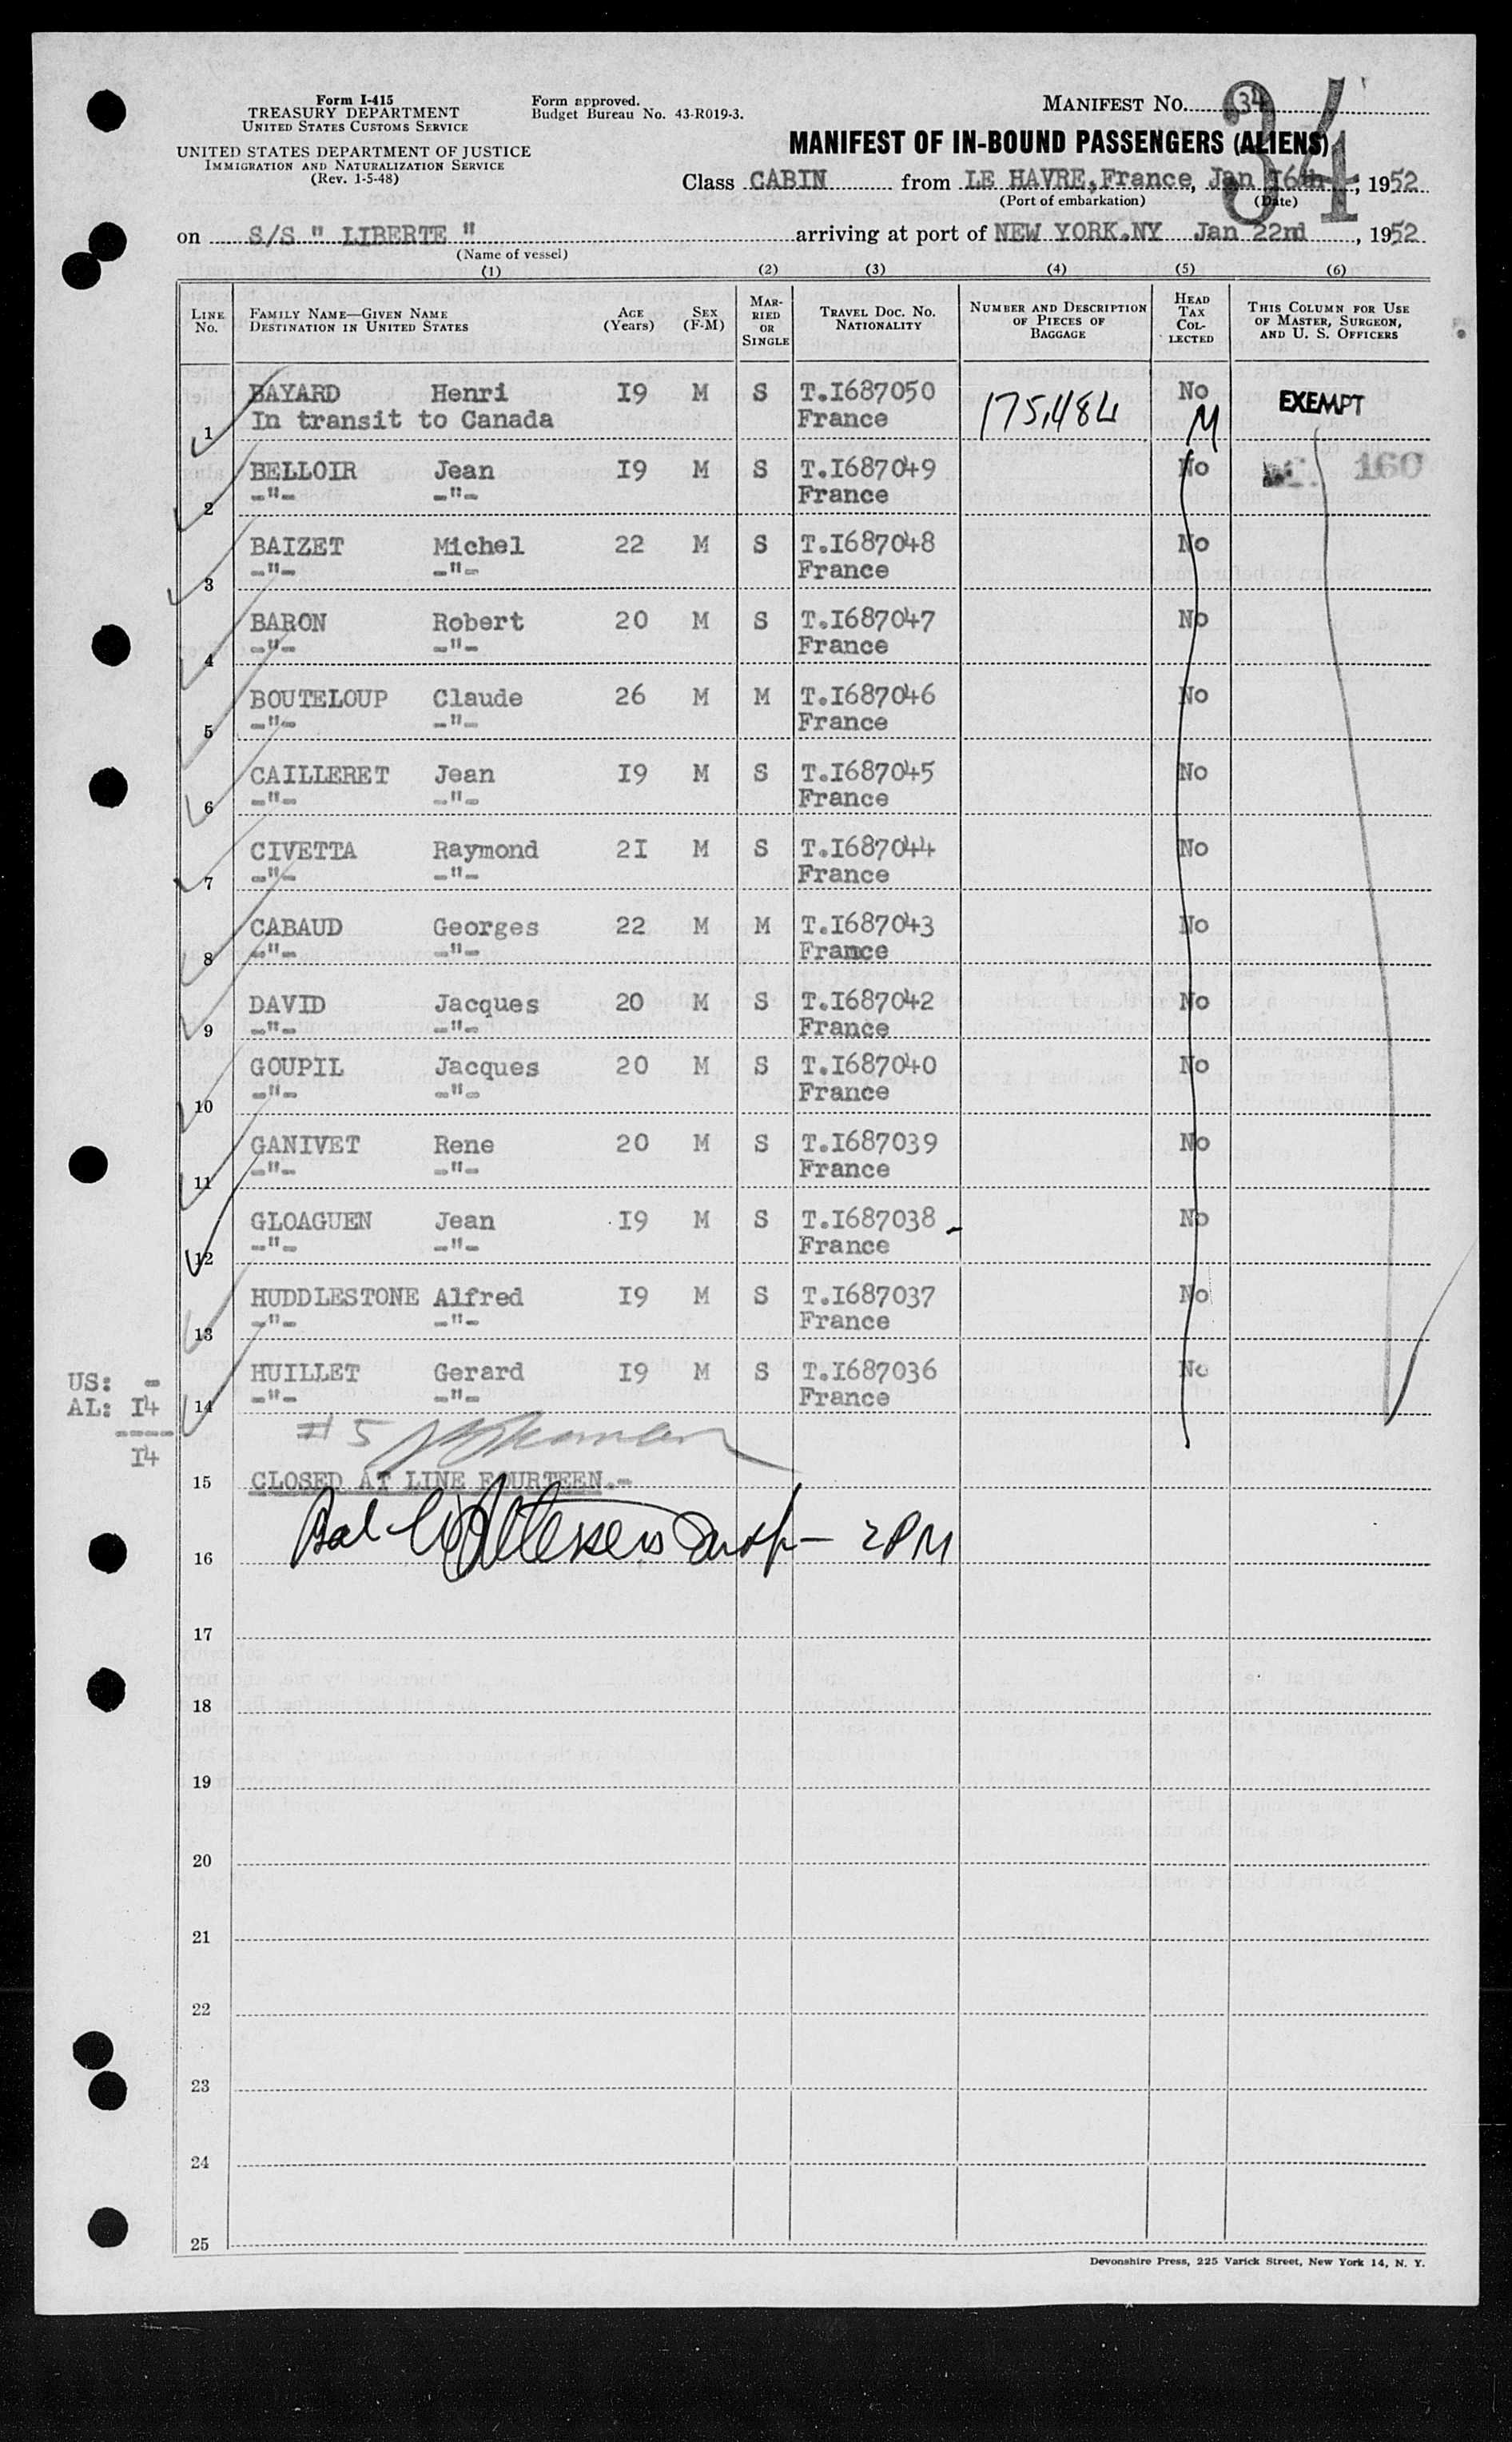 Form I-415
TREASURY DEPARTMENT
UNITED STATES CUSTOMS SERVICE
UNITED STATES DEPARTMENT OF JUSTICE
IMMIGRATION AND NATURALIZATION SERVICE
(Rev. 1-5-48)
Form approved.
Budget Bureau No. 43-R019-3.
MANIFEST NO. 34
34
MANIFEST OF IN-BOUND PASSENGERS (ALIENS)
Class CABIN from LE HAVRE, France, Jan 16th, 1952
(Port of embarkation) (Date)
on S/S " LIBERTE " arriving at port of NEW YORK.NY Jan 22nd, 1952
(Name of vessel)
(1) (2) (3) (4) (5) (6)
LINE No. FAMILY NAME—GIVEN NAME DESTINATION IN UNITED STATES AGE (Years) SEX (F-M) MARRIED OR SINGLE TRAVEL DOC. NO. NATIONALITY NUMBER AND DESCRIPTION OF PIECES OF BAGGAGE HEAD TAX COLLECTED THIS COLUMN FOR USE OF MASTER, SURGEON, AND U. S. OFFICERS
BAYARD Henri I9 M S T.I687050 175,484 No EXEMPT
1 In transit to Canada France M
BELLOIR Jean I9 M S T.I687049 No 160
2 -"- -"- France
BAIZET Michel 22 M S T.I687048 No
3 -"- -"- France
BARON Robert 20 M S T.I687047 No
4 -"- -"- France
BOUTELOUP Claude 26 M M T.I687046 No
5 -"- -"- France
CAILLERET Jean I9 M S T.I687045 No
6 -"- -"- France
CIVETTA Raymond 2I M S T.I687044 No
7 -"- -"- France
CABAUD Georges 22 M M T.I687043 No
8 -"- -"- France
DAVID Jacques 20 M S T.I687042 No
9 -"- -"- France
GOUPIL Jacques 20 M S T.I687040 No
10 -"- -"- France
GANIVET Rene 20 M S T.I687039 No
11 -"- -"- France
GLOAGUEN Jean I9 M S T.I687038 No
12 -"- -"- France
HUDDLESTONE Alfred I9 M S T.I687037 No
13 -"- -"- France
HUILLET Gerard I9 M S T.I687036 No
14 -"- -"- France
US: -
AL: I4
----
I4
# 5
15 CLOSED AT LINE FOURTEEN.-
16 2 PM
17
18
19
20
21
22
23
24
25
Devonshire Press, 225 Varick Street, New York 14, N. Y.